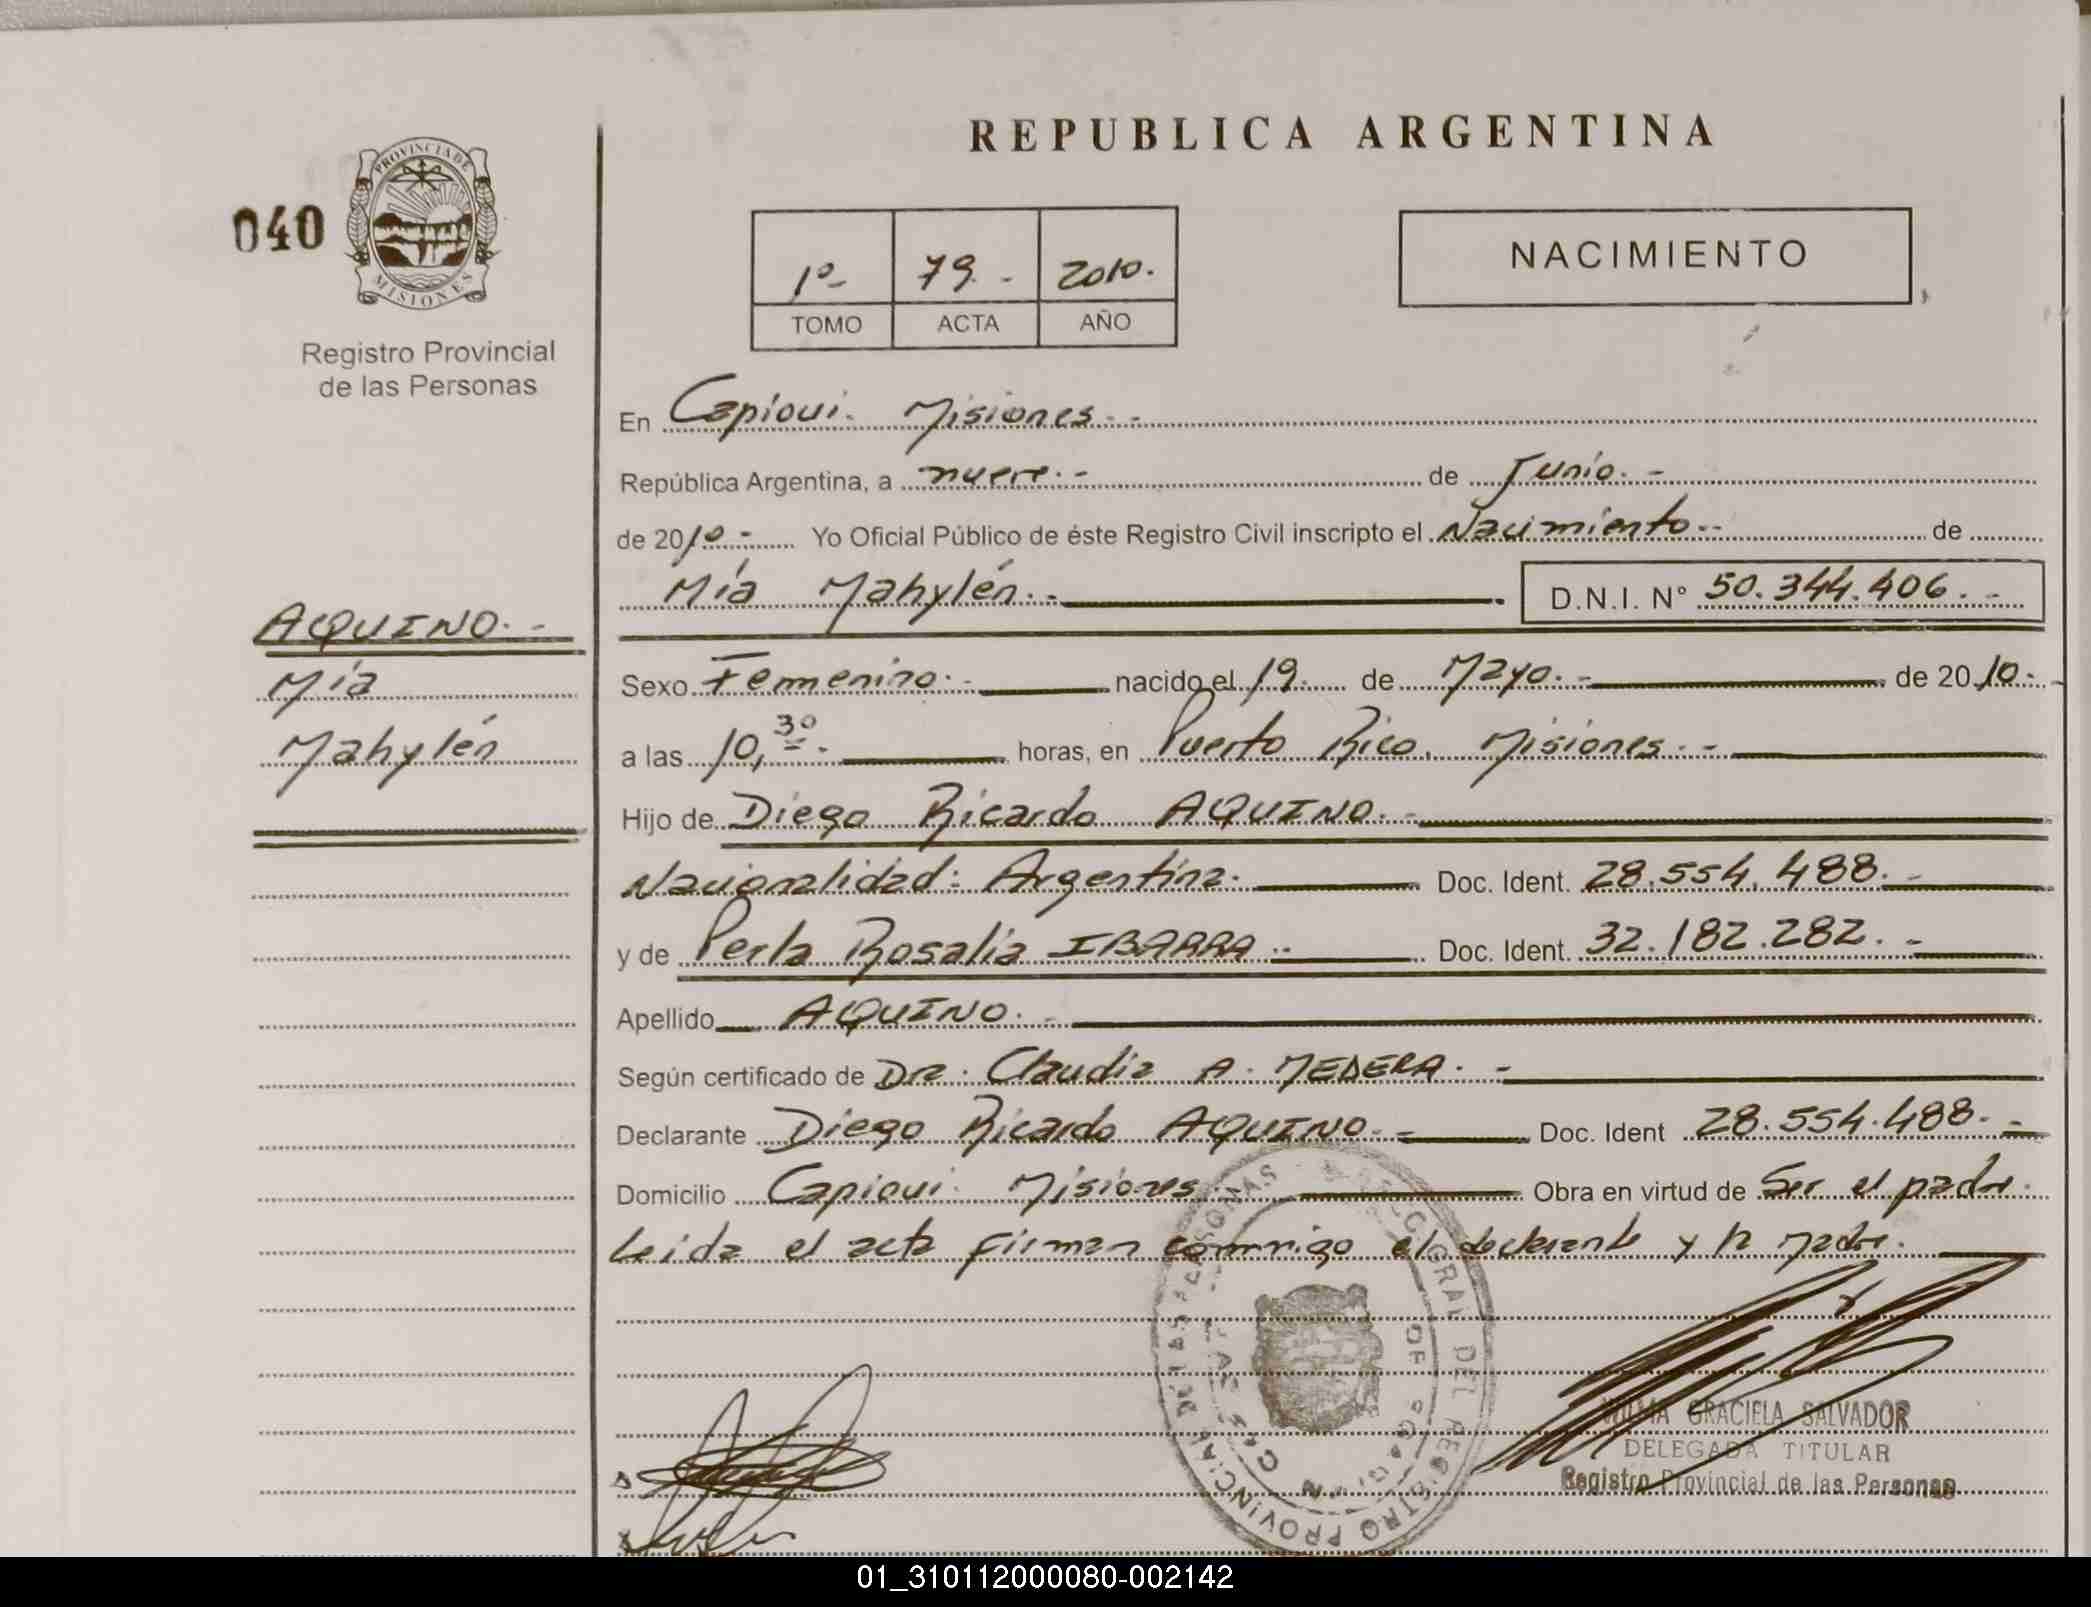 REPUBLICA ARGENTINA
040
PROVINCIA DE
MISIONES
Registro Provincial
de las Personas
1º- 79.- 2010.
TOMO ACTA AÑO
NACIMIENTO
En Capiovi. Misiones.-
República Argentina, a nueve.- de Junio.-
de 2010- Yo Oficial Público de éste Registro Civil inscripto el Nacimiento.- de
Mía Mahylén.- D.N.I. Nº 50.344.406.-
AQUINO.-
Mía
Mahylén
Sexo Femenino.- nacido el 19. de Mayo.- de 2010.-
a las 10,30. horas, en Puerto Rico. Misiones.-
Hijo de Diego Ricardo AQUINO.-
Nacionalidad: Argentina. Doc. Ident. 28.554.488.-
y de Perla Rosalia IBARRA.- Doc. Ident. 32.182.282.-
Apellido AQUINO.-
Según certificado de Dra. Claudia A. MEDERA.-
Declarante Diego Ricardo AQUINO.- Doc. Ident 28.554.488.-
Domicilio Capiovi. Misiones. Obra en virtud de Ser el padre.
Leida el acta firman conmigo el declarante y la Madre.
REGISTRO PROVINCIAL DE LAS PERSONAS
GRAL DEL
VILMA GRACIELA SALVADOR
DELEGADA TITULAR
Registro Provincial de las Personas
01_310112000080-002142